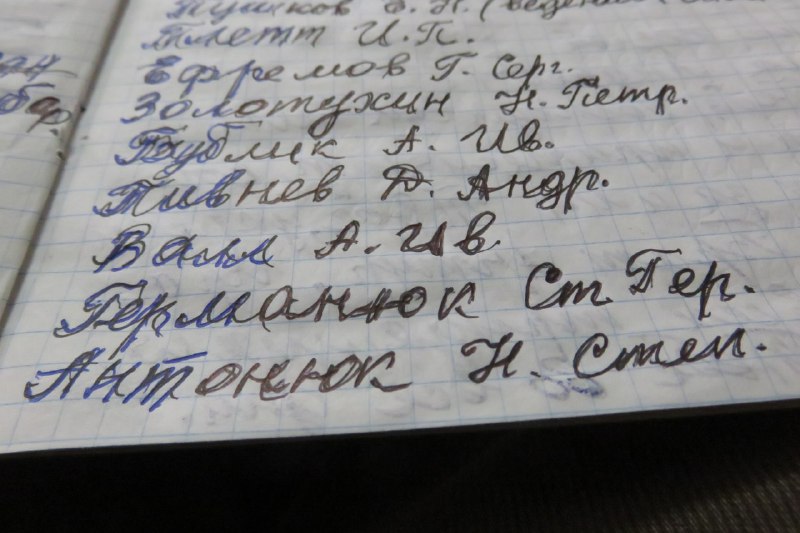 Плетт И.П.
Ефремов Г. Серг.
Золотухин Н. Петр.
Бублик А. Ив.
Пивнев Д. Андр.
Валл А. Ив.
Германюк Ст. Гер.
Антонюк Н. Степ.